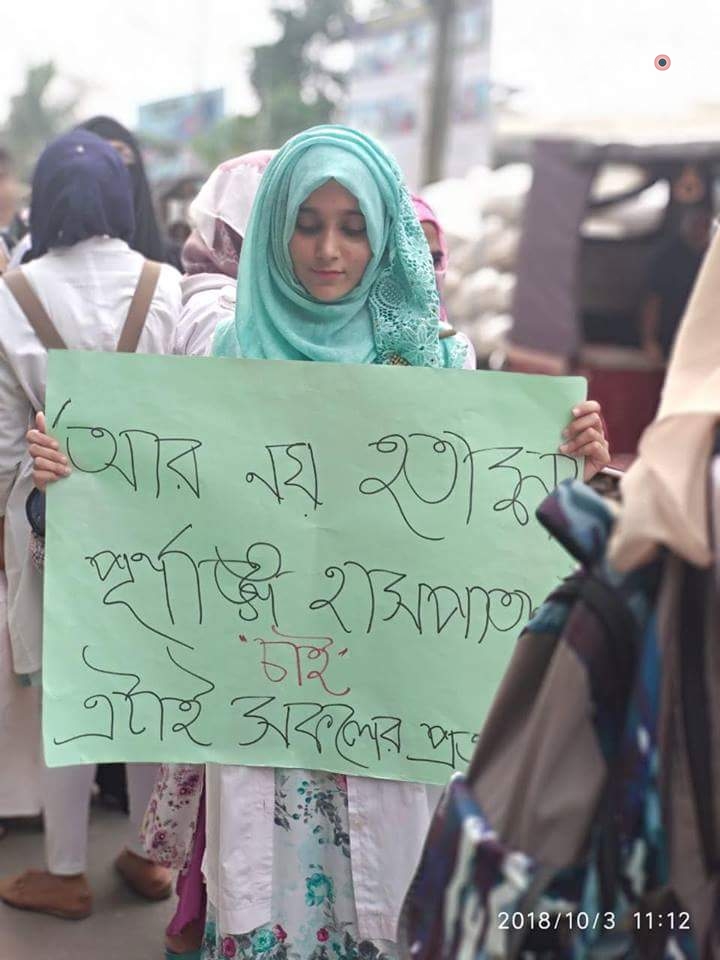 আর নয় হতাকুন
পূর্ণাঙ্গ হাসপাতা
"চাই"
এটাই সকলের প্র
2018/10/3 11:12